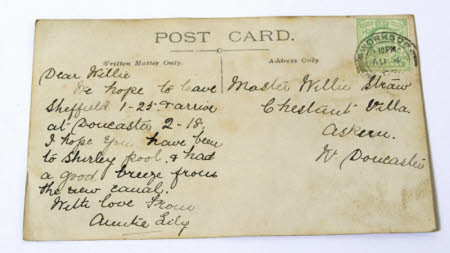 POST CARD.
Written Matter Only.
Address Only
WORKSOP
10 PM
AU 4
Dear Willie
We hope to leave
Sheffield 1-25 & arrive
at Doncaster 2-18.
I hope you have been
to Shirley pool, & had
a good breeze from
the new canal.
With love From
Auntie Lily
Master Willie Straw
Chestnut Villa.
Askern.
Nr Doncaster